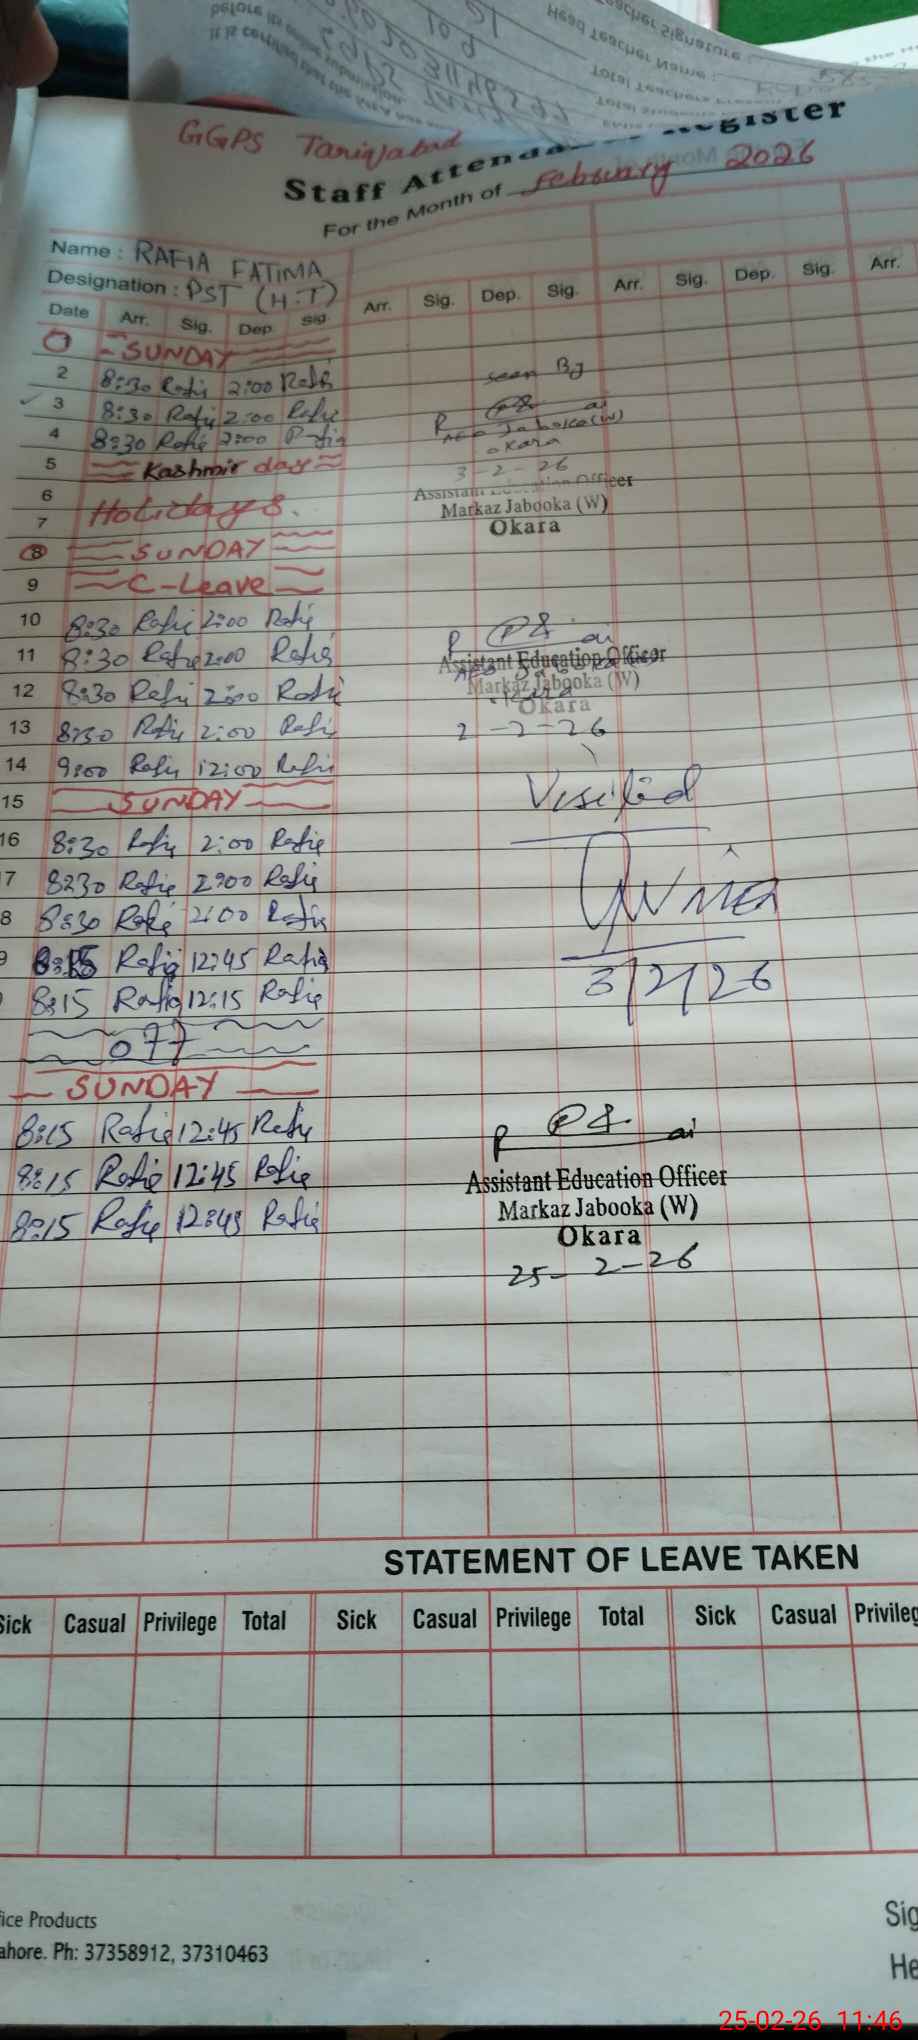 before its online submission.
It is certified that the
Head Teacher Signature :
Total Teacher Name :
GGPS Tariqabad
Staff Attendance Register
For the Month of February 2026
Name : RAFIA FATIMA
Designation : PST (H.T)
Date Arr. Sig. Dep. Sig. Arr. Sig. Dep. Sig. Arr. Sig. Dep. Sig. Arr.
1 SUNDAY
2 8:30 Rafia 2:00 Rafia
seen By
3 8:30 Rafia 2:00 Rafia
4 8:30 Rafia 2:00 Rafia
AEO Jabooka(W)
Okara
5 Kashmir day
3-2-26
6 Holidays.
7
Assistant Education Officer
Markaz Jabooka (W)
Okara
8 SUNDAY
9 C-Leave
10 8:30 Rafia 2:00 Rafia
11 8:30 Rafia 2:00 Rafia
Assistant Education Officer
12 8:30 Rafia 2:00 Rafia
Markaz Jabooka (W)
Okara
13 8:30 Rafia 2:00 Rafia
2-2-26
14 9:00 Rafia 12:00 Rafia
15 SUNDAY
Verified
16 8:30 Rafia 2:00 Rafia
7 8:30 Rafia 2:00 Rafia
8 8:30 Rafia 2:00 Rafia
9 8:15 Rafia 12:45 Rafia
3/2/26
8:15 Rafia 12:15 Rafia
off
SUNDAY
8:15 Rafia 12:45 Rafia
8:15 Rafia 12:45 Rafia
Assistant Education Officer
8:15 Rafia 12:45 Rafia
Markaz Jabooka (W)
Okara
25-2-26
STATEMENT OF LEAVE TAKEN
Sick Casual Privilege Total Sick Casual Privilege Total Sick Casual Privileg
fice Products
ahore. Ph: 37358912, 37310463
Sig
He
25-02-26 11:46